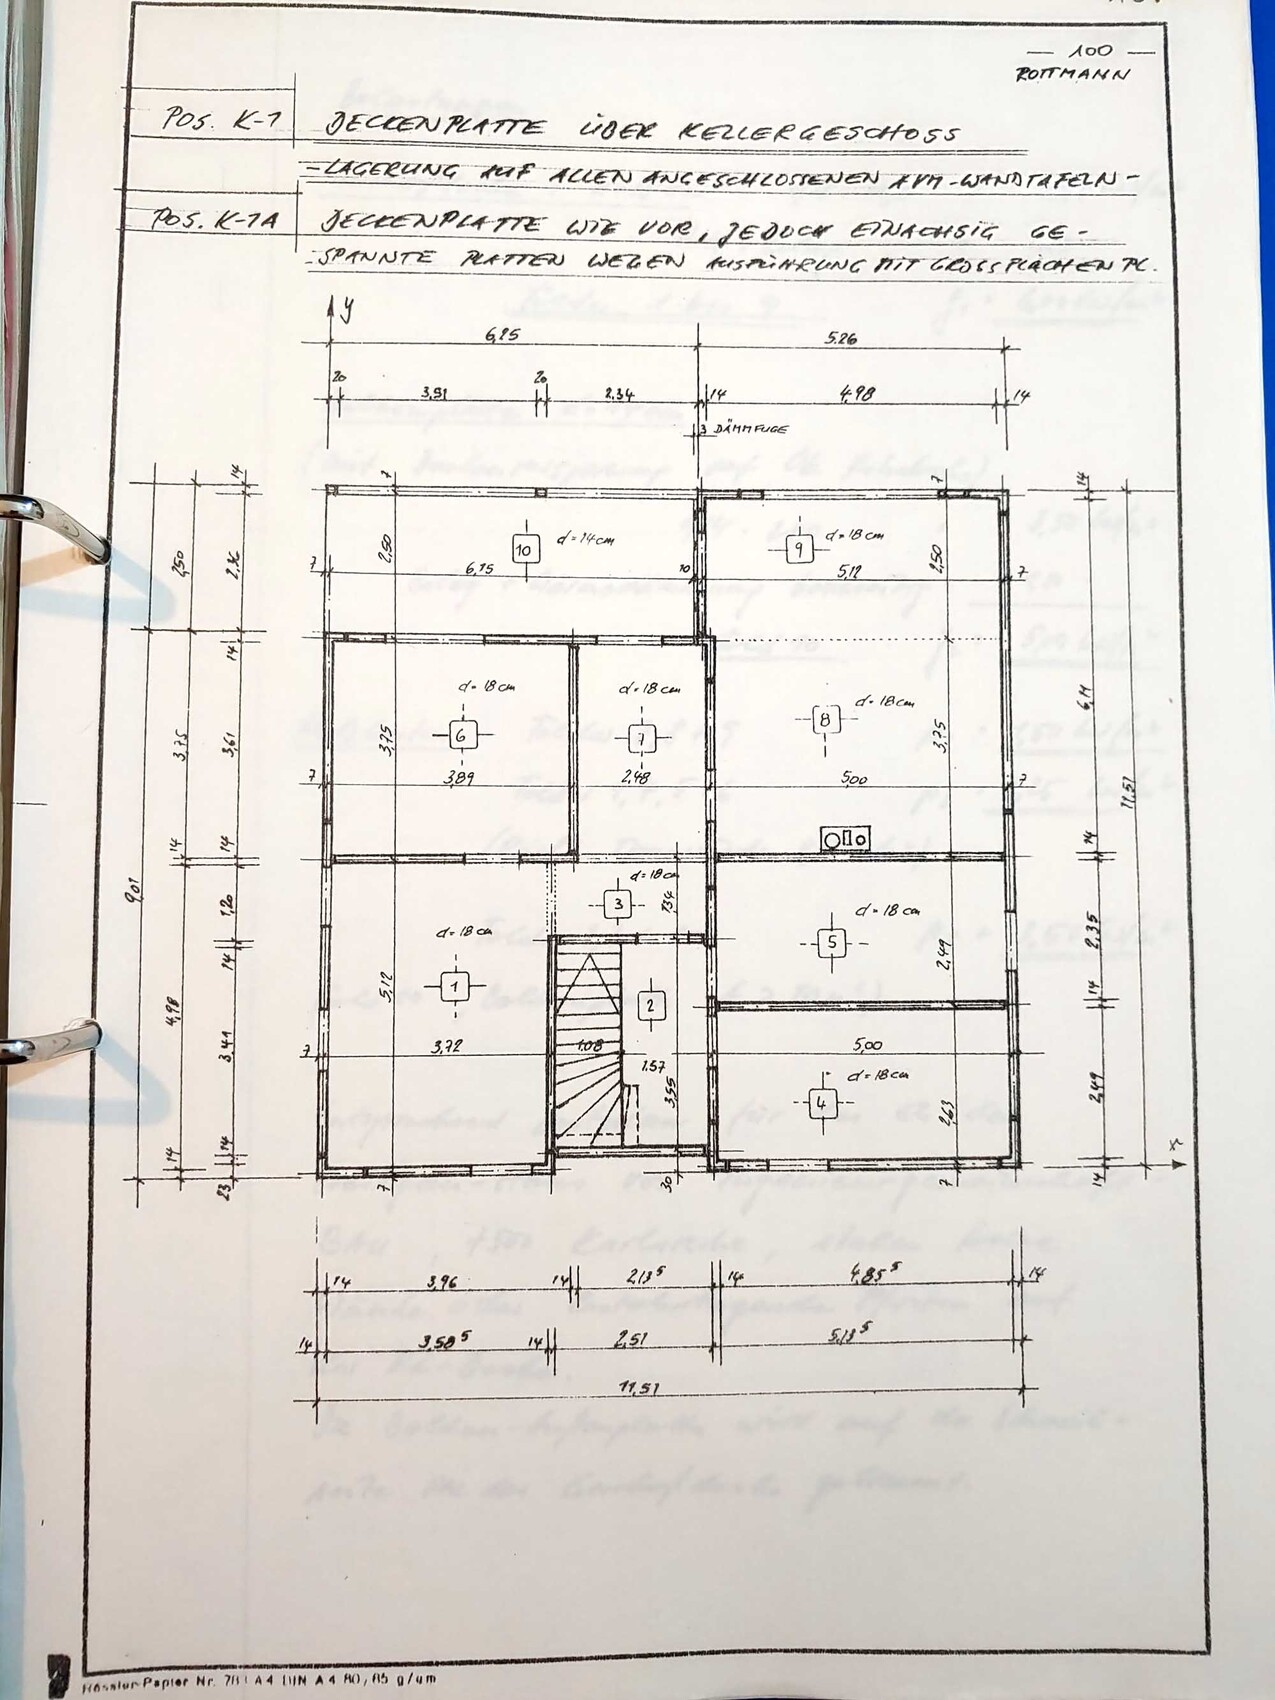 — 100 —
ROTTMANN
POS. K-1 DECKENPLATTE ÜBER KELLERGESCHOSS
-LAGERUNG AUF ALLEN ANGESCHLOSSENEN KVM-WANDTAFELN-
POS. K-1A DECKENPLATTE WIE VOR, JEDOCH EINACHSIG GE-
SPANNTE PLATTEN WEGEN AUSFÜHRUNG MIT GROSSFLÄCHENPL.
y
6,25 5.26
20 3,51 20 2,34 14 4,98 14
3 DÄMMFUGE
14 7 7 14
2,50 2,36 2,50 10 d=14cm 9 d=18cm 2,50
7 6,15 10 5,12 7
14
d=18cm d=18cm d=18cm 6,11
3,75 3,61 3,75 6 7 8 3,75
7 3,89 2,48 5,00 7 11,51
14 14 14
9,01 1,20 d=18cm 3 1,34
d=18cm d=18cm 2,35
14 5 2,49
4,98 5,12 1 2 14
3,41 7 3,72 1.08 1.57 5,00
3,55 d=18cm 2,49
4 2,63
14 14 x
23 7 30 7 14
14 3,96 14 2,13⁵ 14 4,85⁵ 14
14 3,58⁵ 14 2,51 5,13⁵
11,51